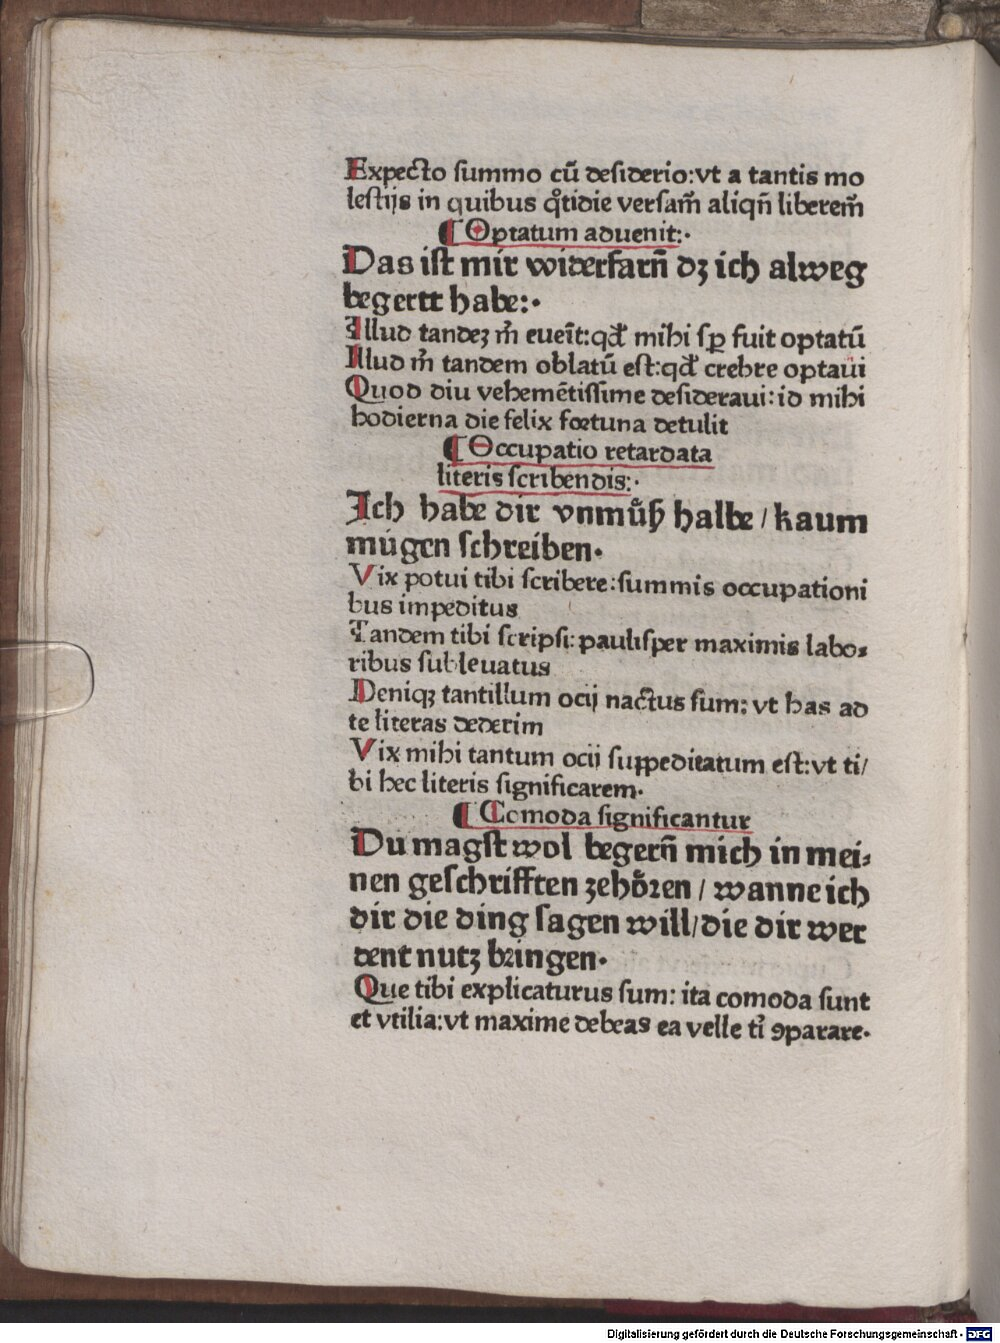 Expecto ſummo cū deſiderio:vt a tantis mo
leſtijs in quibus qͦtidie verſam̄ aliqn̄ liberem̄
¶ Optatum aduenit:·
Das iſt mir widerfarn̄ dꝫ ich alweg
begertt habe:·
Illud tandeꝫ m̄ eueīt:qd̄ mihi ſꝑ fuit optatū
Illud m̄ tandem oblatū eſt:qd̄ crebre optaui
Quod diu vehemētiſſime deſideraui:id mihi
hodierna die felix foꝛtuna detulit
¶ Occupatio retardata
literis ſcribendis:·
Ich habe dir vnmuͦſz halbe / kaum
mugen ſchreiben·
Vix potui tibi ſcribere:ſummis occupationi
bus impeditus
Tandem tibi ſcripſi:pauliſper maximis labo⸗
ribus ſubleuatus
Deniqꝫ tantillum ocij nactus ſum:vt has ad
te literas dederim
Vix mihi tantum ocij ſuppeditatum eſt:vt ti/
bi hec literis ſignificarem·
¶ Comoda ſignificantur
Du magſt wol begern̄ mich in mei⸗
nen geſchrifften zehoͤꝛen / wanne ich
dir die ding ſagen will/die dir wer
dent nutz bꝛingen·
Que tibi explicaturus ſum: ita comoda ſunt
et vtilia:vt maxime debeas ea velle tͥ ꝯparare·
Digitalisierung gefördert durch die Deutsche Forschungsgemeinschaft - DFG